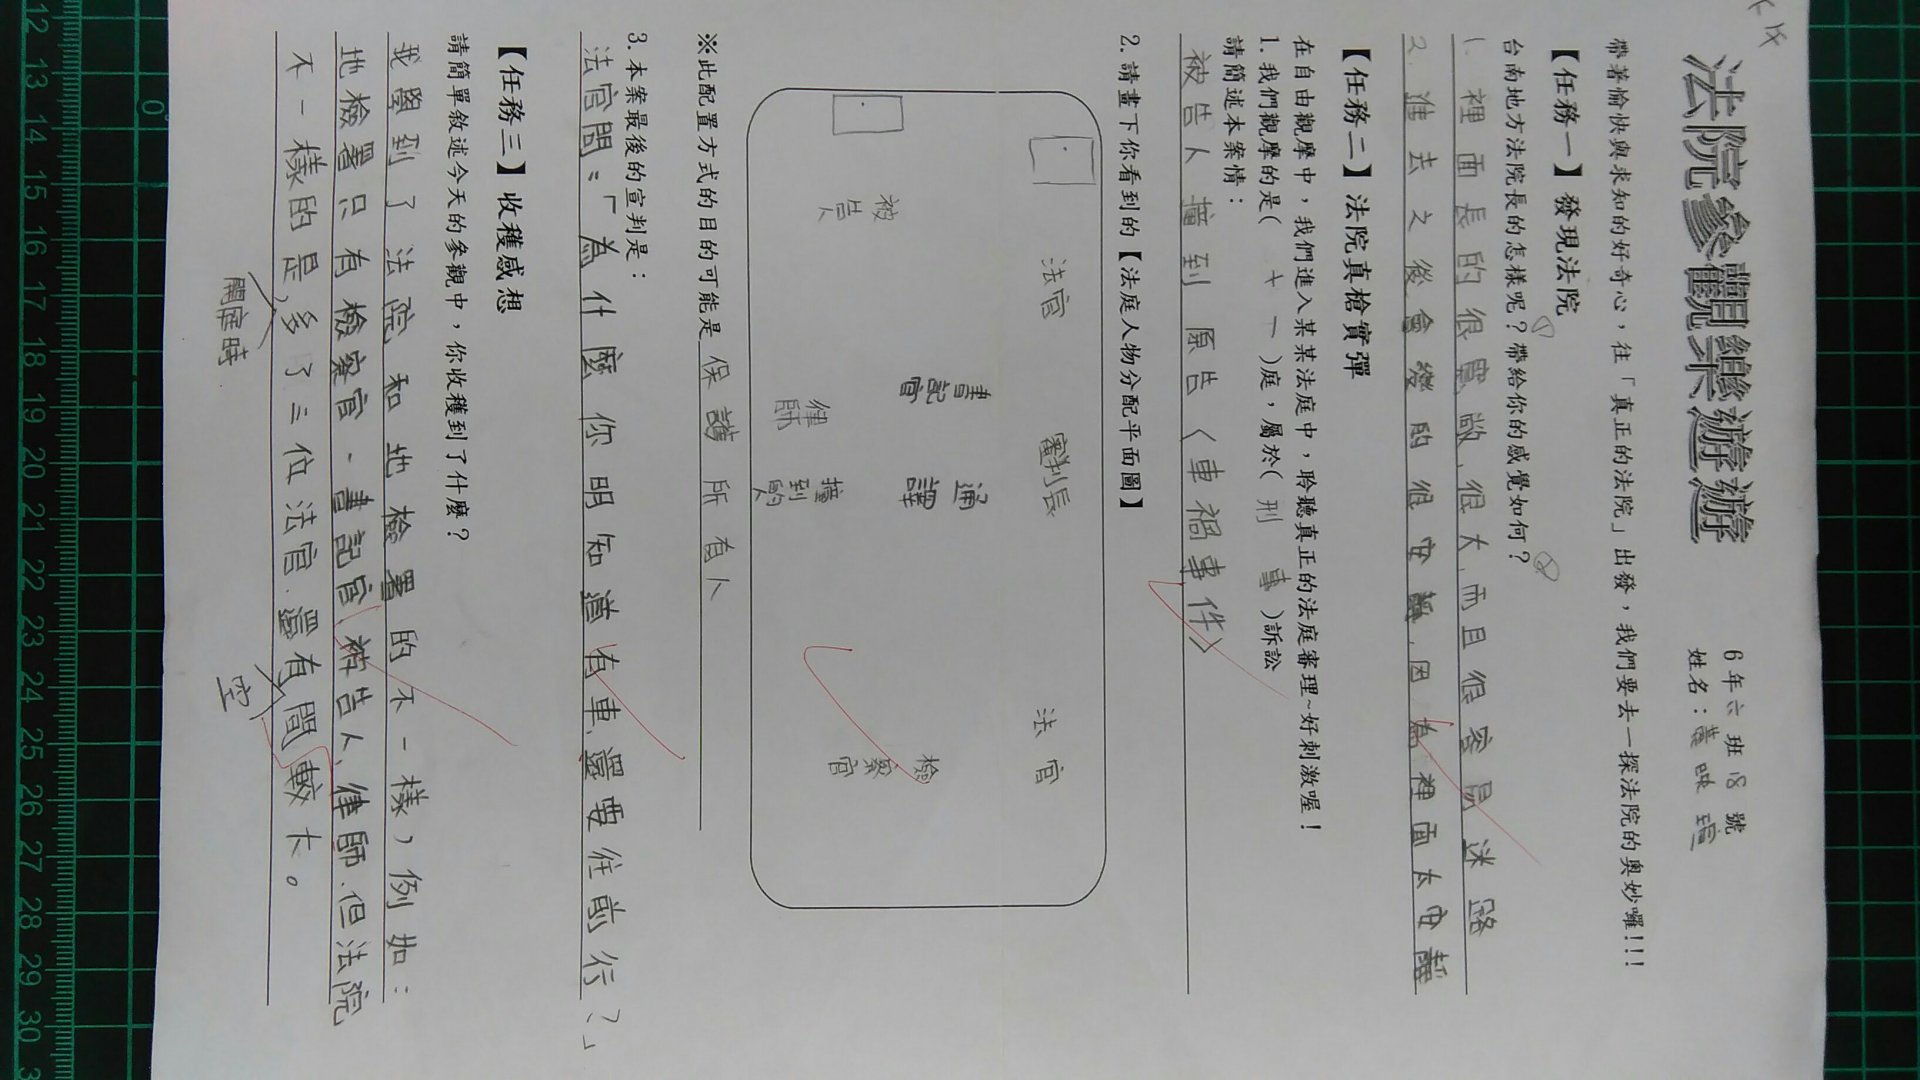 法院參觀樂遊遊
6年六班18號
姓名:
帶著愉快與求知的好奇心,往「真正的法院」出發,我們要去一探法院的奧妙囉!!!
【任務一】發現法院
台南地方法院長的怎樣呢?①帶給你的感覺如何?②
1. 裡面長的很寬敞、很大、而且很容易迷路
2. 進去之後會變的很安靜,因為裡面太安靜
【任務二】法院真槍實彈
在自由觀摩中,我們進入某某法庭中,聆聽真正的法庭審理~好刺激喔!
1.我們觀摩的是( 十一 )庭,屬於( 刑事 )訴訟
請簡述本案情:
被告人撞到原告〈車禍事件〉
2.請畫下你看到的【法庭人物分配平面圖】
法官 審判長 法官
書記官 通譯 檢察官
被告人 律師 撞到的人
※此配置方式的目的可能是保護所有人
3.本案最後的宣判是:
法官問:「為什麼你明知道有車、還要往前行?」
【任務三】收穫感想
請簡單敘述今天的參觀中,你收穫到了什麼?
我學到了法院和地檢署的不一樣,例如:
地檢署只有檢察官、書記官、被告人、律師、但法院
不一樣的是,多了三位法官、還有間較大。
開庭時
空